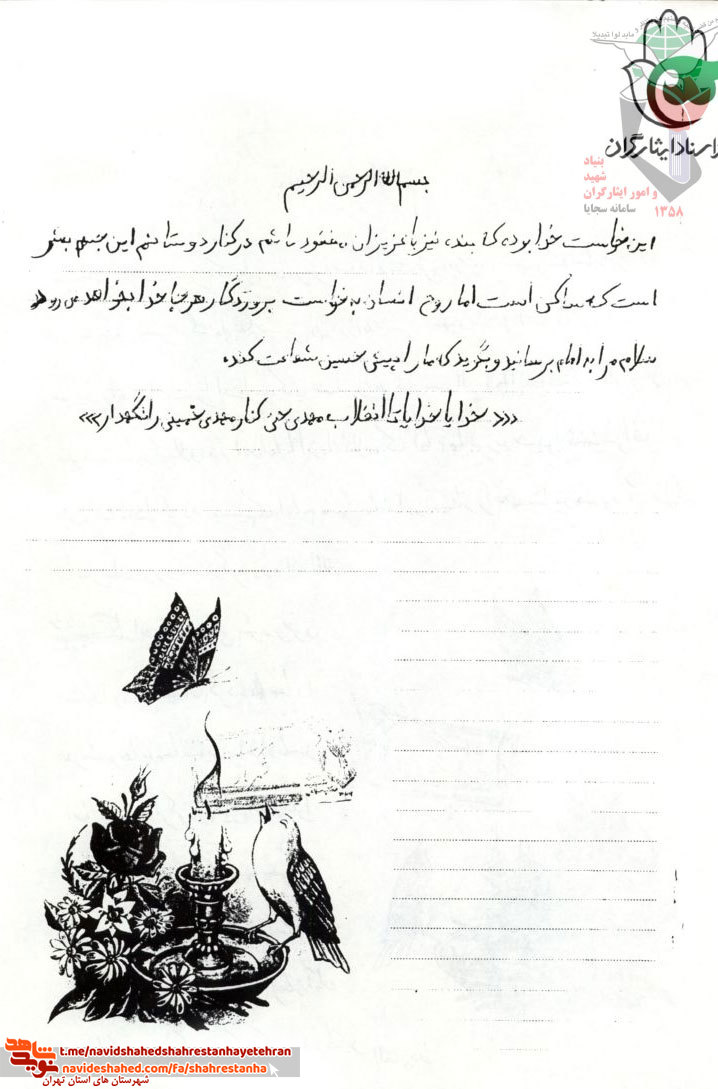 اسناد ایثارگران
بنیاد
شهید
و امور ایثارگران
سامانه سجایا ۱۳۵۸
بسم الله الرحمن الرحیم
این خواست خدا بوده که بنده نیز با عزیزان مفقود باشم در کنار دوستانم این جسم بعثی
است که ساکن است اما روح انسان به خواست پروردگار هر جا خدا بخواهد می رود
سلام مرا به امام برسانید و بگوئید که ما را پیش حسین شفاعت کند.
««« خدایا خدایا تا انقلاب مهدی حتی کنار مهدی خمینی را نگهدار »»»
نوید شاهد
t.me/navidshahedshahrestanhayetehran
navideshahed.com/fa/shahrestanha
شهرستان های استان تهران